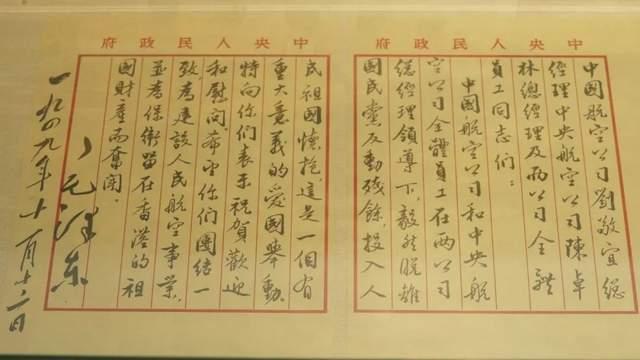 中央人民政府
中國航空公司劉敬宜總
經理中央航空公司陳卓
林總經理及兩公司全體
員工同志們：
中國航空公司和中央航
空公司全體員工在兩公司
總經理領導下，毅然脫離
國民黨反動殘餘，投入人
中央人民政府
民祖國懷抱，這是一個有
重大意義的愛國舉動
特向你們表示祝賀歡迎
和慰問。希望你們團結一
致，為建設人民航空事業，
並為保衛留在香港的祖
國財產而奮鬥。
毛澤東
一九四九年十一月十二日